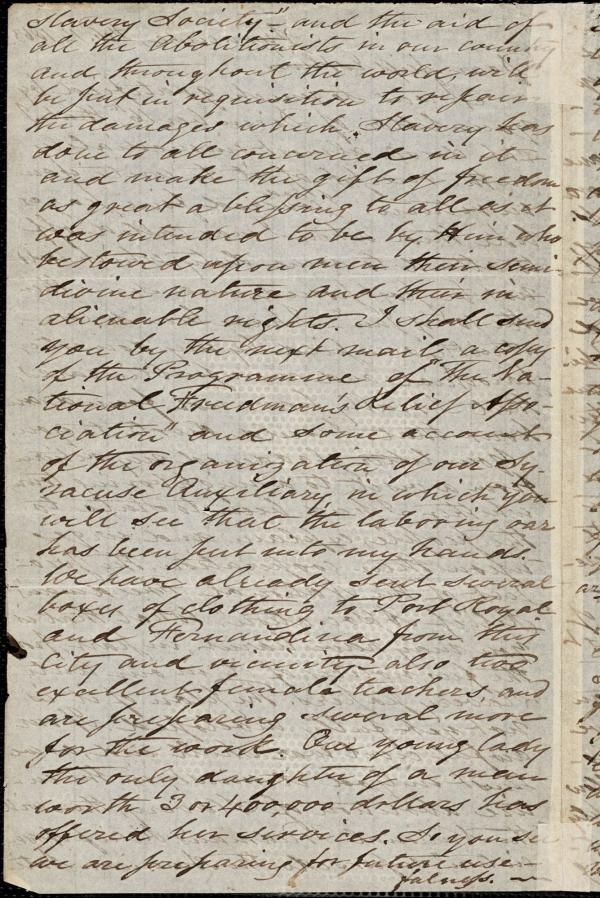 Slavery Society" - and the aid of
all the Abolitionists in our country
and throughout the world, will
be put in requisition to repair
the damages which Slavery has
done to all concerned in it -
and make the gift of freedom
as great a blessing to all as it
was intended to be by Him who
bestowed upon men their semi-
divine nature and their in-
alienable rights. I shall send
you by the next mail, a copy
of the Programme of "The Na-
tional Freedman's Relief Asso-
ciation" and some account
of the organization of our Sy-
racuse Auxiliary, in which you
will see that the laboring oar
has been put into my hands.
We have already sent several
boxes of clothing to Port Royal
and Fernandina from this
City and vicinity - also two
excellent female teachers, and
are preparing several more
for the work. One young lady
the only daughter of a man
worth 3 or 400,000 dollars has
offered her services. So you see
we are preparing for future use-
fulness. -